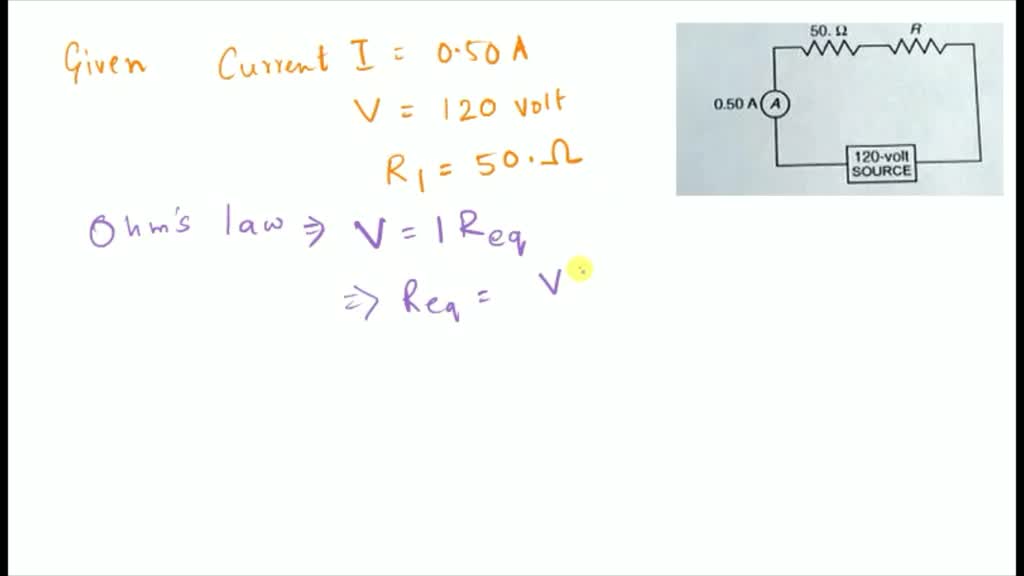 Given Current I = 0.50 A
V = 120 volt
R1 = 50. Ω
Ohm's law ⇒ V = I Req
⇒ Req = V
50. Ω R
0.50 A A
120-volt
SOURCE